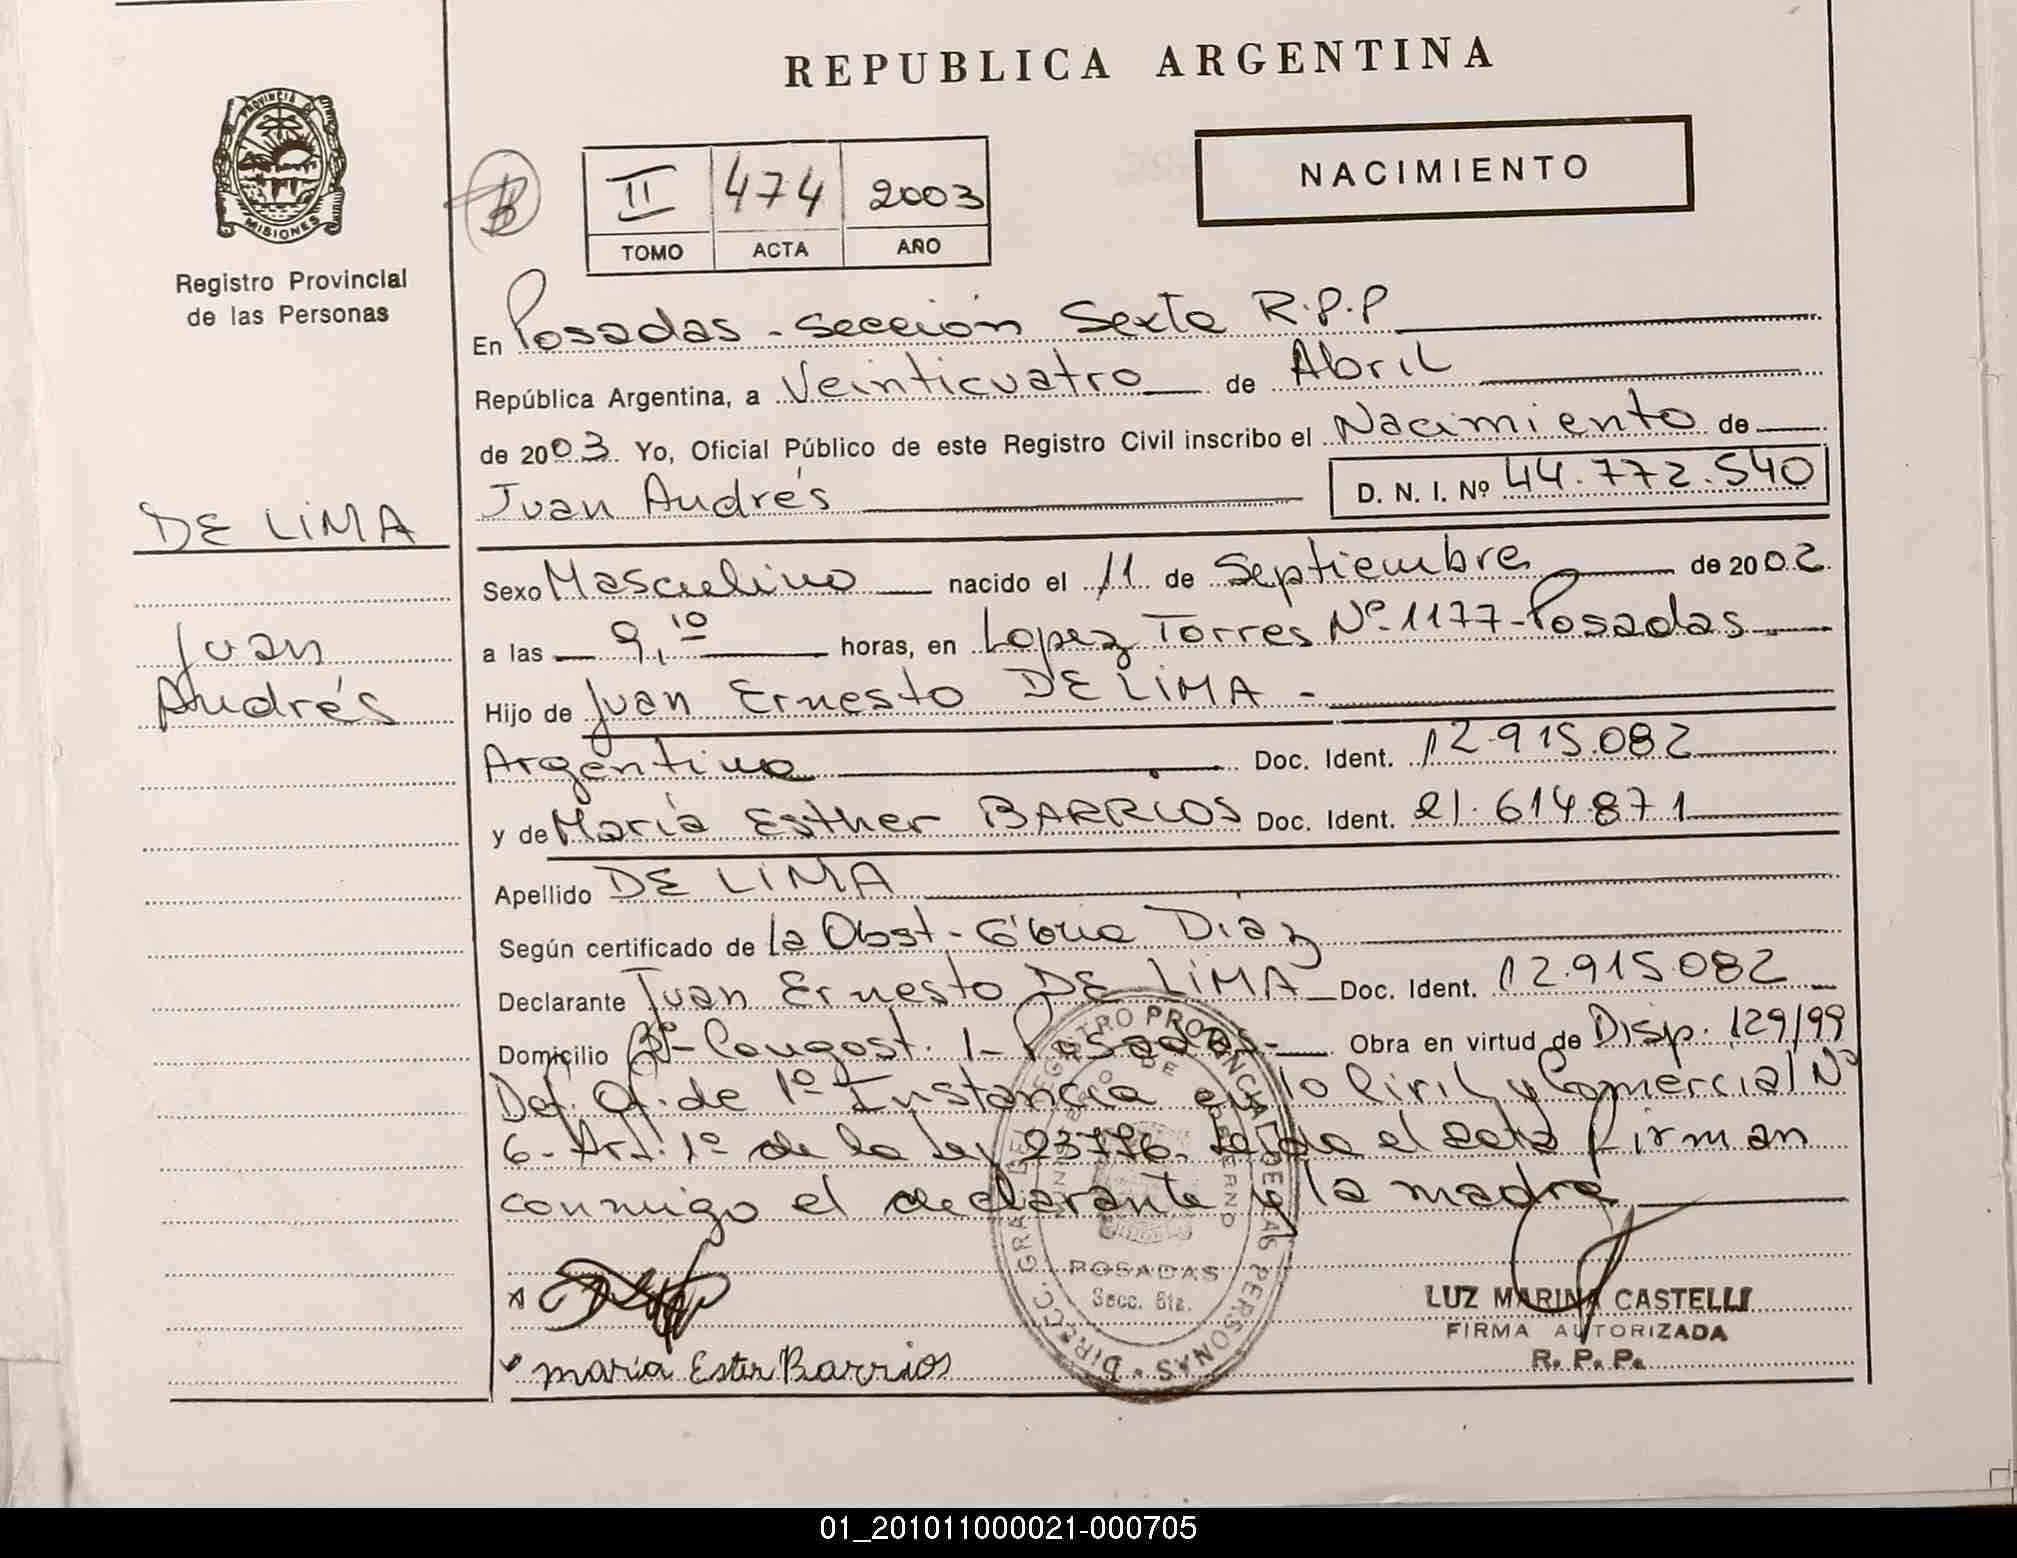 REPUBLICA ARGENTINA
PROVINCIA DE
MISIONES
Registro Provincial
de las Personas
II 474 2003
TOMO ACTA AÑO
NACIMIENTO
En Posadas - Sección Sexta R.P.P
República Argentina, a Veinticuatro de Abril
de 2003. Yo, Oficial Público de este Registro Civil inscribo el Nacimiento de
Juan Andrés D. N. I. Nº 44.772.540
DE LIMA
Juan
Andrés
Sexo Masculino nacido el 11 de Septiembre de 2002
a las 9,10 horas, en Lopez Torres Nº 1177 - Posadas
Hijo de Juan Ernesto DE LIMA -
Argentino Doc. Ident. 12.915.082
y de María Esther BARRIOS Doc. Ident. 21.614.871
Apellido DE LIMA
Según certificado de la Obst - Gloria Diaz
Declarante Juan Ernesto DE LIMA Doc. Ident. 12.915.082
Domicilio Bº - 1 - Posadas - Obra en virtud de Disp. 129/99
Def. Of. de 1º Instancia en lo Civil y Comercial Nº
6 - Art. 1º de la Ley 23776. Leída el acta firman
conmigo el declarante y la madre
DIRECC. GRAL. DEL REGISTRO PROVINCIAL DE LAS PERSONAS
MINISTERIO DE GOBIERNO
POSADAS
Secc. 6ta.
LUZ MARINA CASTELLI
FIRMA AUTORIZADA
R. P. P.
maria Ester Barrios
01_201011000021-000705